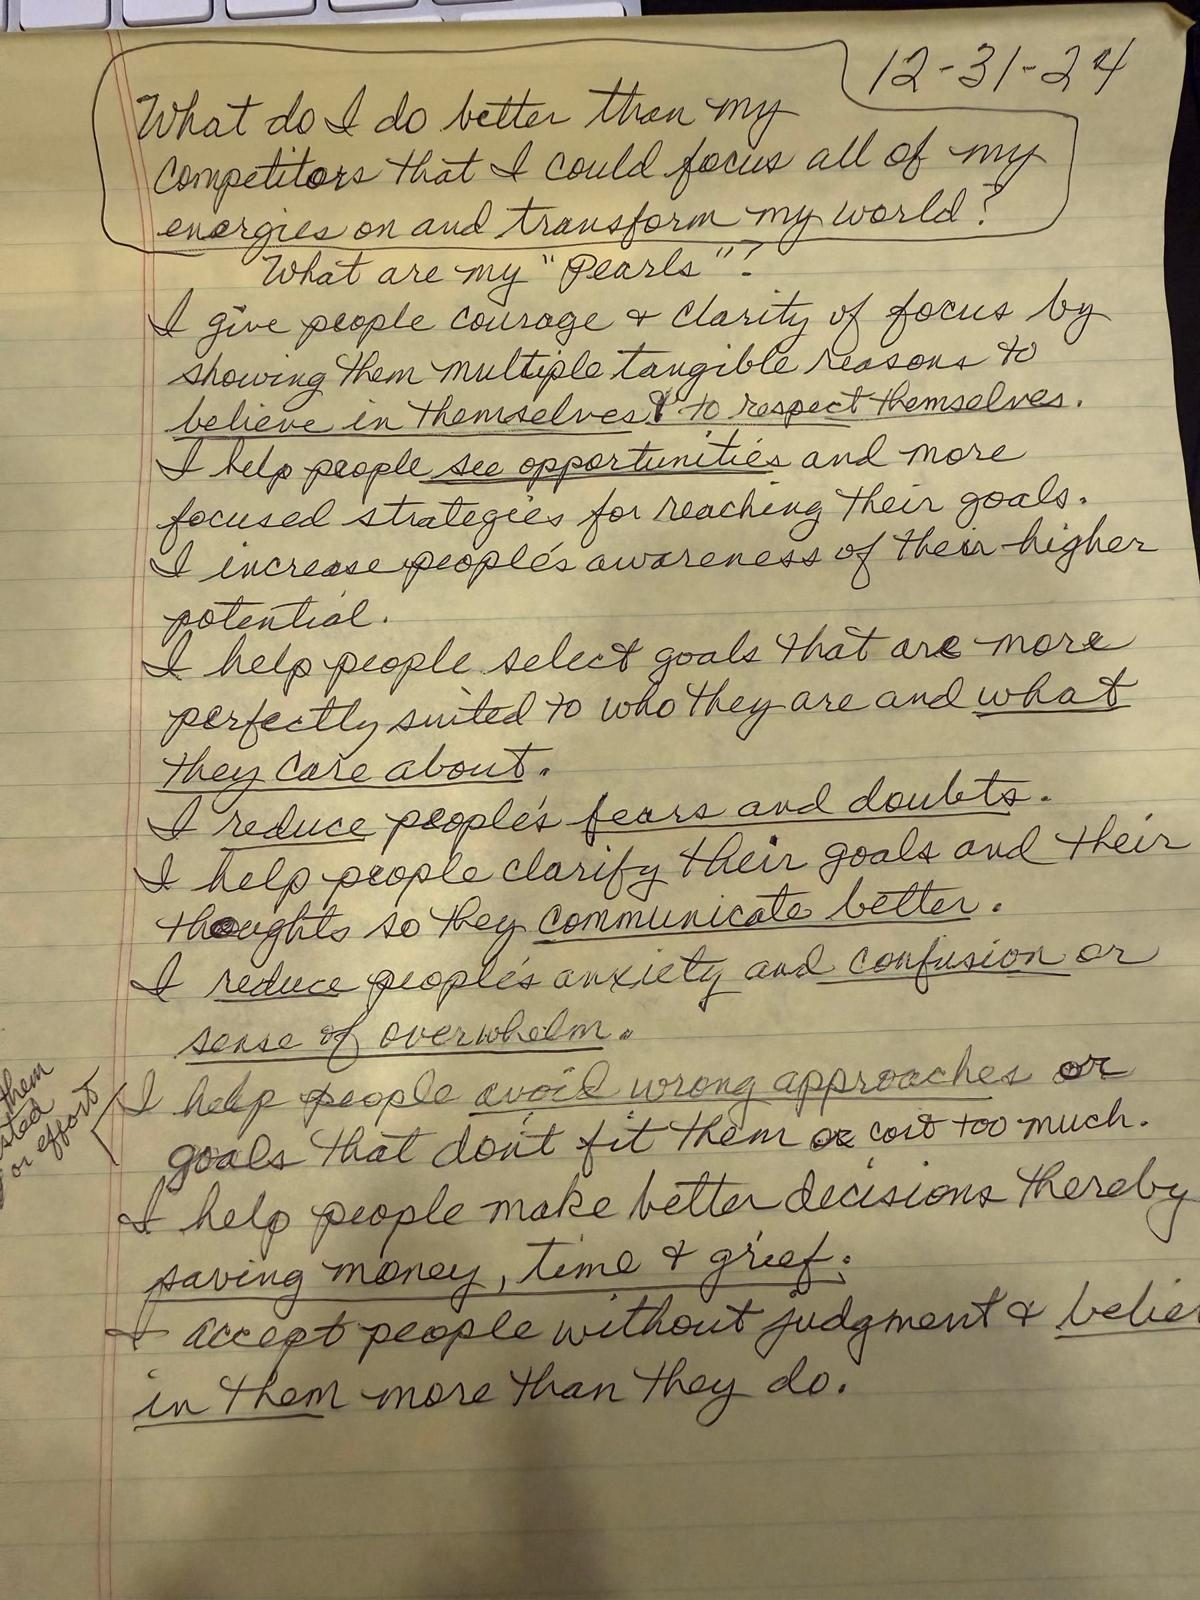 12-31-24
What do I do better than my
competitors that I could focus all of my
energies on and transform my world?
What are my "Pearls"?
I give people courage & clarity of focus by
showing them multiple tangible reasons to
believe in themselves & to respect themselves.
I help people see opportunities and more
focused strategies for reaching their goals.
I increase people's awareness of their higher
potential.
I help people select goals that are more
perfectly suited to who they are and what
they care about.
I reduce people's fears and doubts.
I help people clarify their goals and their
thoughts so they communicate better.
I reduce people's anxiety and confusion or
sense of overwhelm.
them
or effort
I help people avoid wrong approaches or
goals that don't fit them or cost too much.
I help people make better decisions thereby
saving money, time & grief.
I accept people without judgment & belie
in them more than they do.